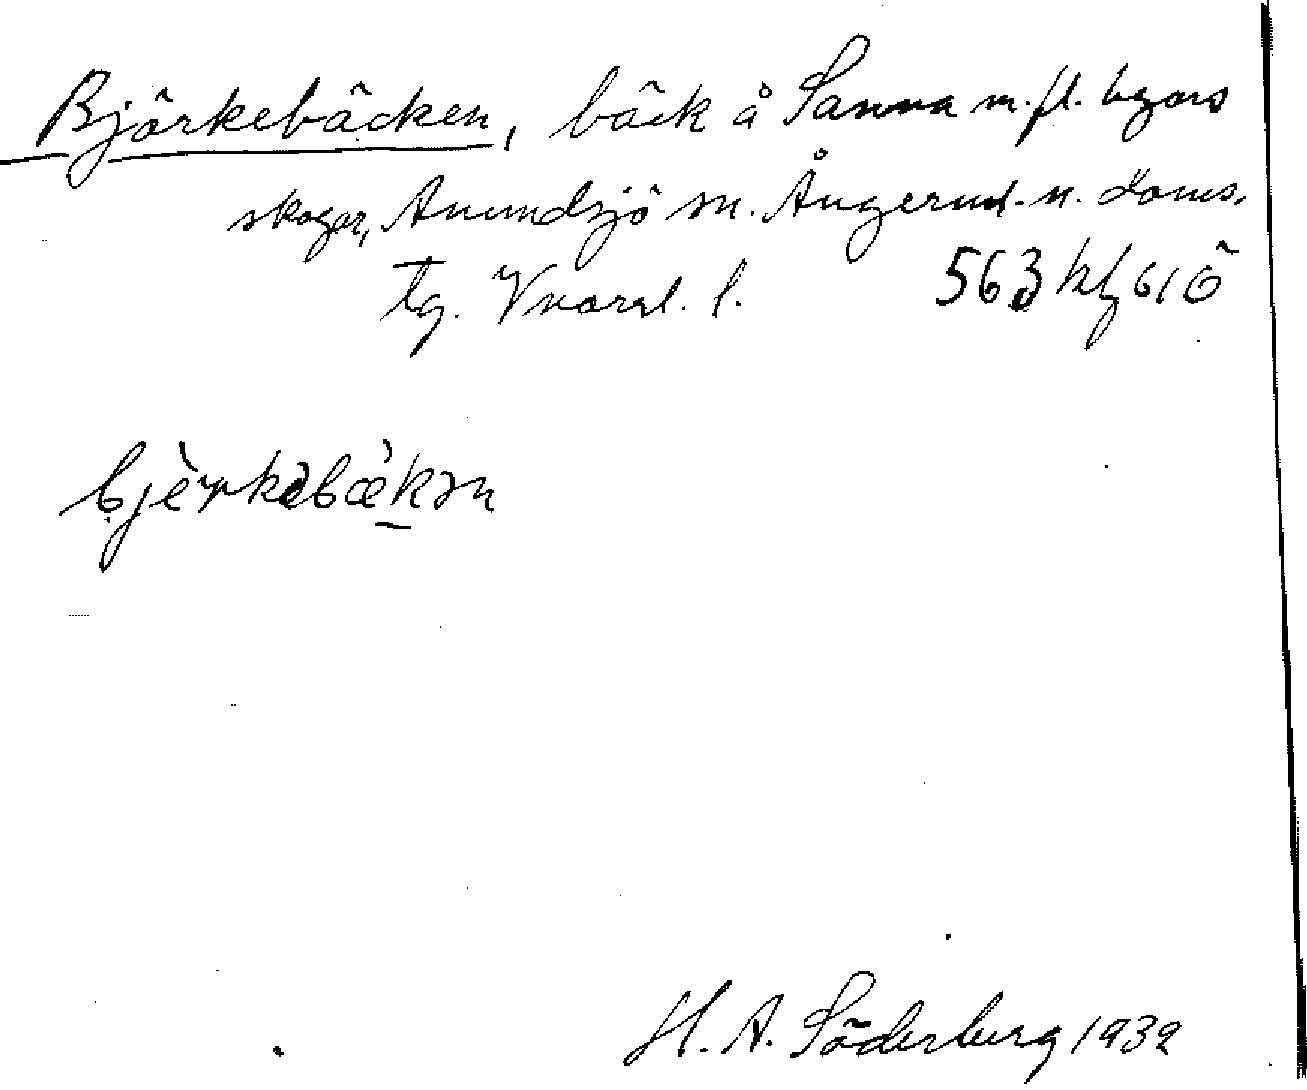 Björkebäcken, bäck å Sanna m.fl. byars
skogar, Anundsjö sn. Ångerml. n. doms.
tg. Vnorrl. l. 563 kf 61 ö
bjèrkəbæ̀kən
H. A. Söderberg 1932